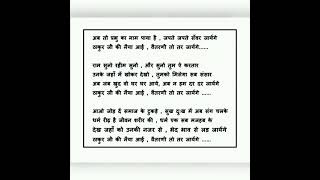 अब तो प्रभु का नाम पाया है , जपते जपते संवर जायेंगे
ठाकुर जी की नैया आई , वैतरणी तो तर जायेंगे .....
राम सुनो रहीम सुनो , और सुनो तुम ऐ करतार
उनके जहाँ में खोकर देखो , तुमको मिलेगा सब संसार
अब जब खुद वो घर घर आये, अब न हम दर दर जायेंगे
ठाकुर जी की नैया आई , वैतरणी तो तर जायेंगे .....
आओ जोड़ दें समाज के टुकड़े , सुख दुःख में अब संग चलके
धर्म रीढ़ है जीवन शरीर की , धर्म एक सब मजहब के
देख जहाँ को उनकी नजर से , भेद भाव से लड़ जायेंगे
ठाकुर जी की नैया आई , वैतरणी तो तर जायेंगे .....